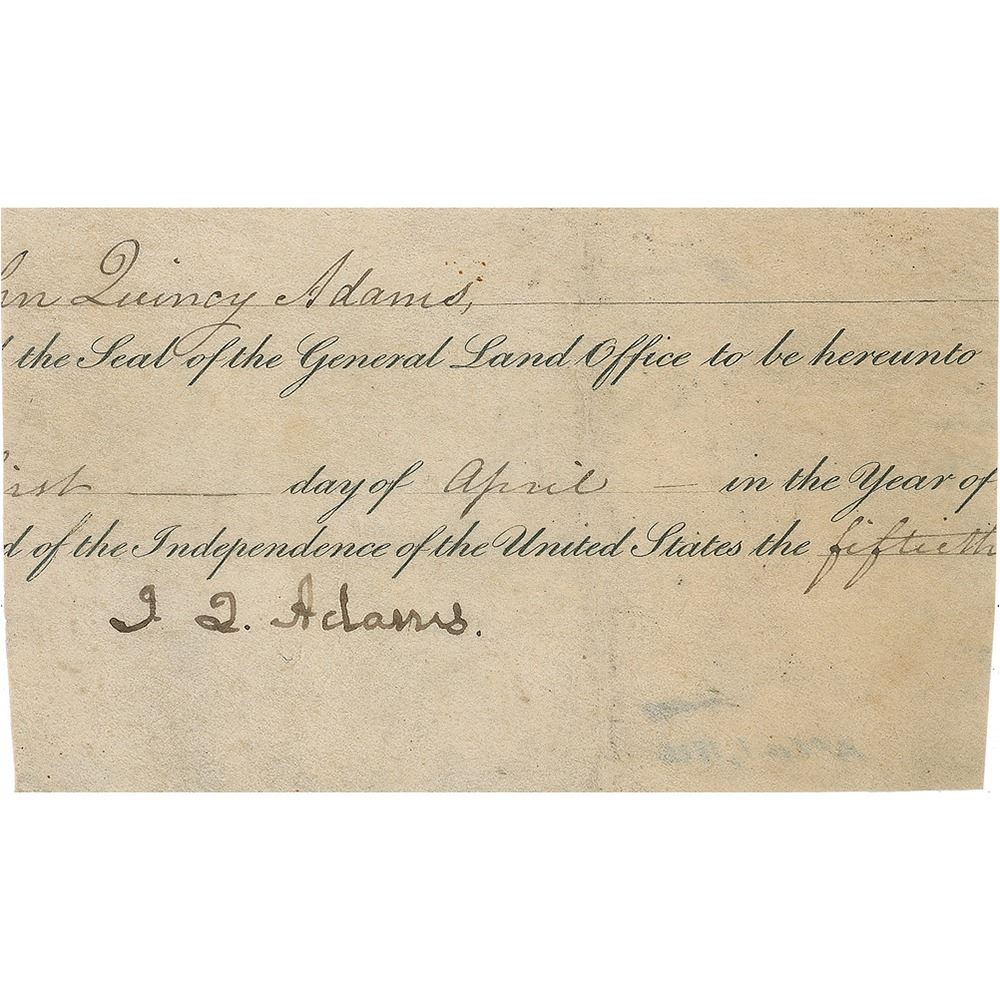 hn Quincy Adams,
the Seal of the General Land Office to be hereunto
irst day of April in the Year of
d of the Independence of the United States the fiftieth
J. Q. Adams.